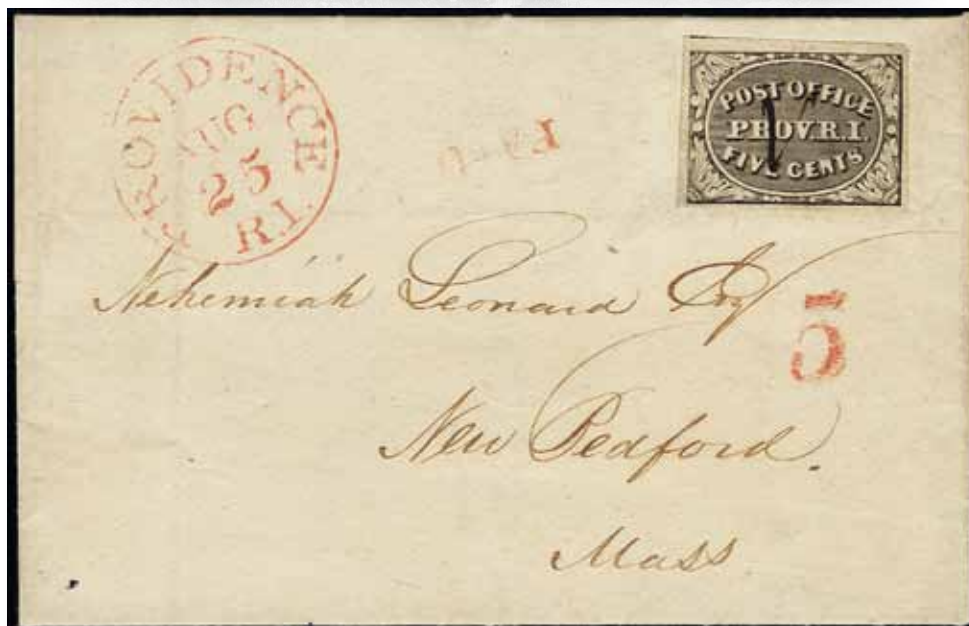 PROVIDENCE
AUG
25
R.I.
PAID
POST OFFICE
PROV. R.I.
FIVE CENTS
Nehemiah Leonard Esq
5
New Bedford.
Mass